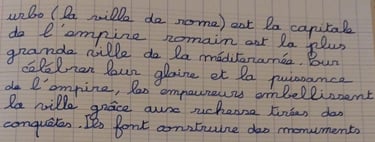 urbs (la ville de rome) est la capitale
de l'empire romain est la plus
grande ville de la méditeranée. Pour
célébrer leur gloire et la puissance
de l'empire, les empereurs embellissent
la ville grâce aux richesse tirées des
conquêtes. Ils font construire des monuments